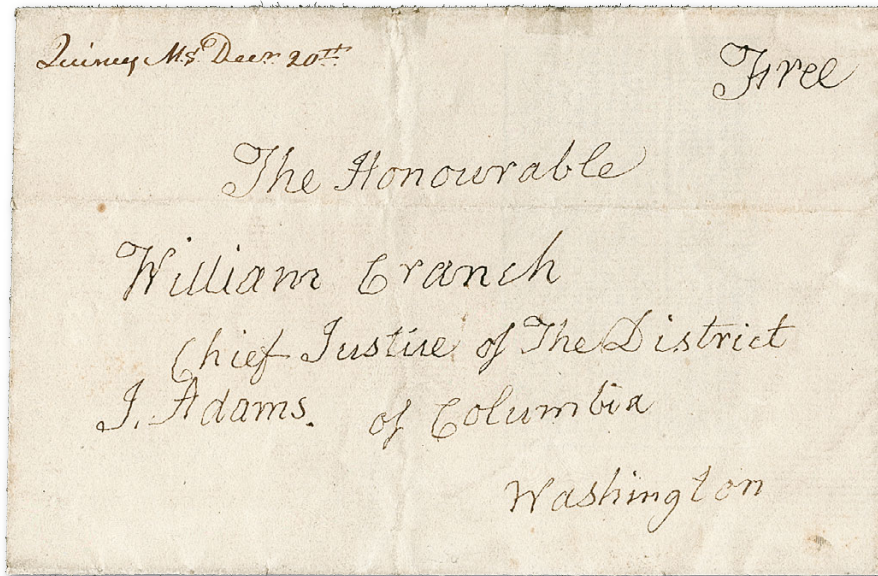 Quincy Ms. Decr. 20th
Free
The Honourable
William Cranch
Chief Justice of The District
J. Adams. of Columbia
Washington